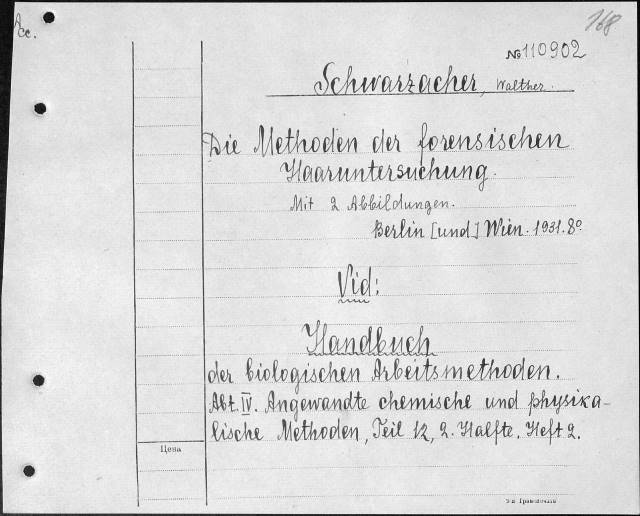 Acc.
168
№ 110902
Schwarzacher, Walther.
Die Methoden der forensischen
Haaruntersuchung.
Mit 2 Abbildungen.
Berlin [und] Wien. 1931. 8º
Vid:
Handbuch
der biologischen Arbeitsmethoden.
Abt. IV. Angewandte chemische und physika-
lische Methoden, Teil 12, 2. Halfte. Heft 2.
Цена